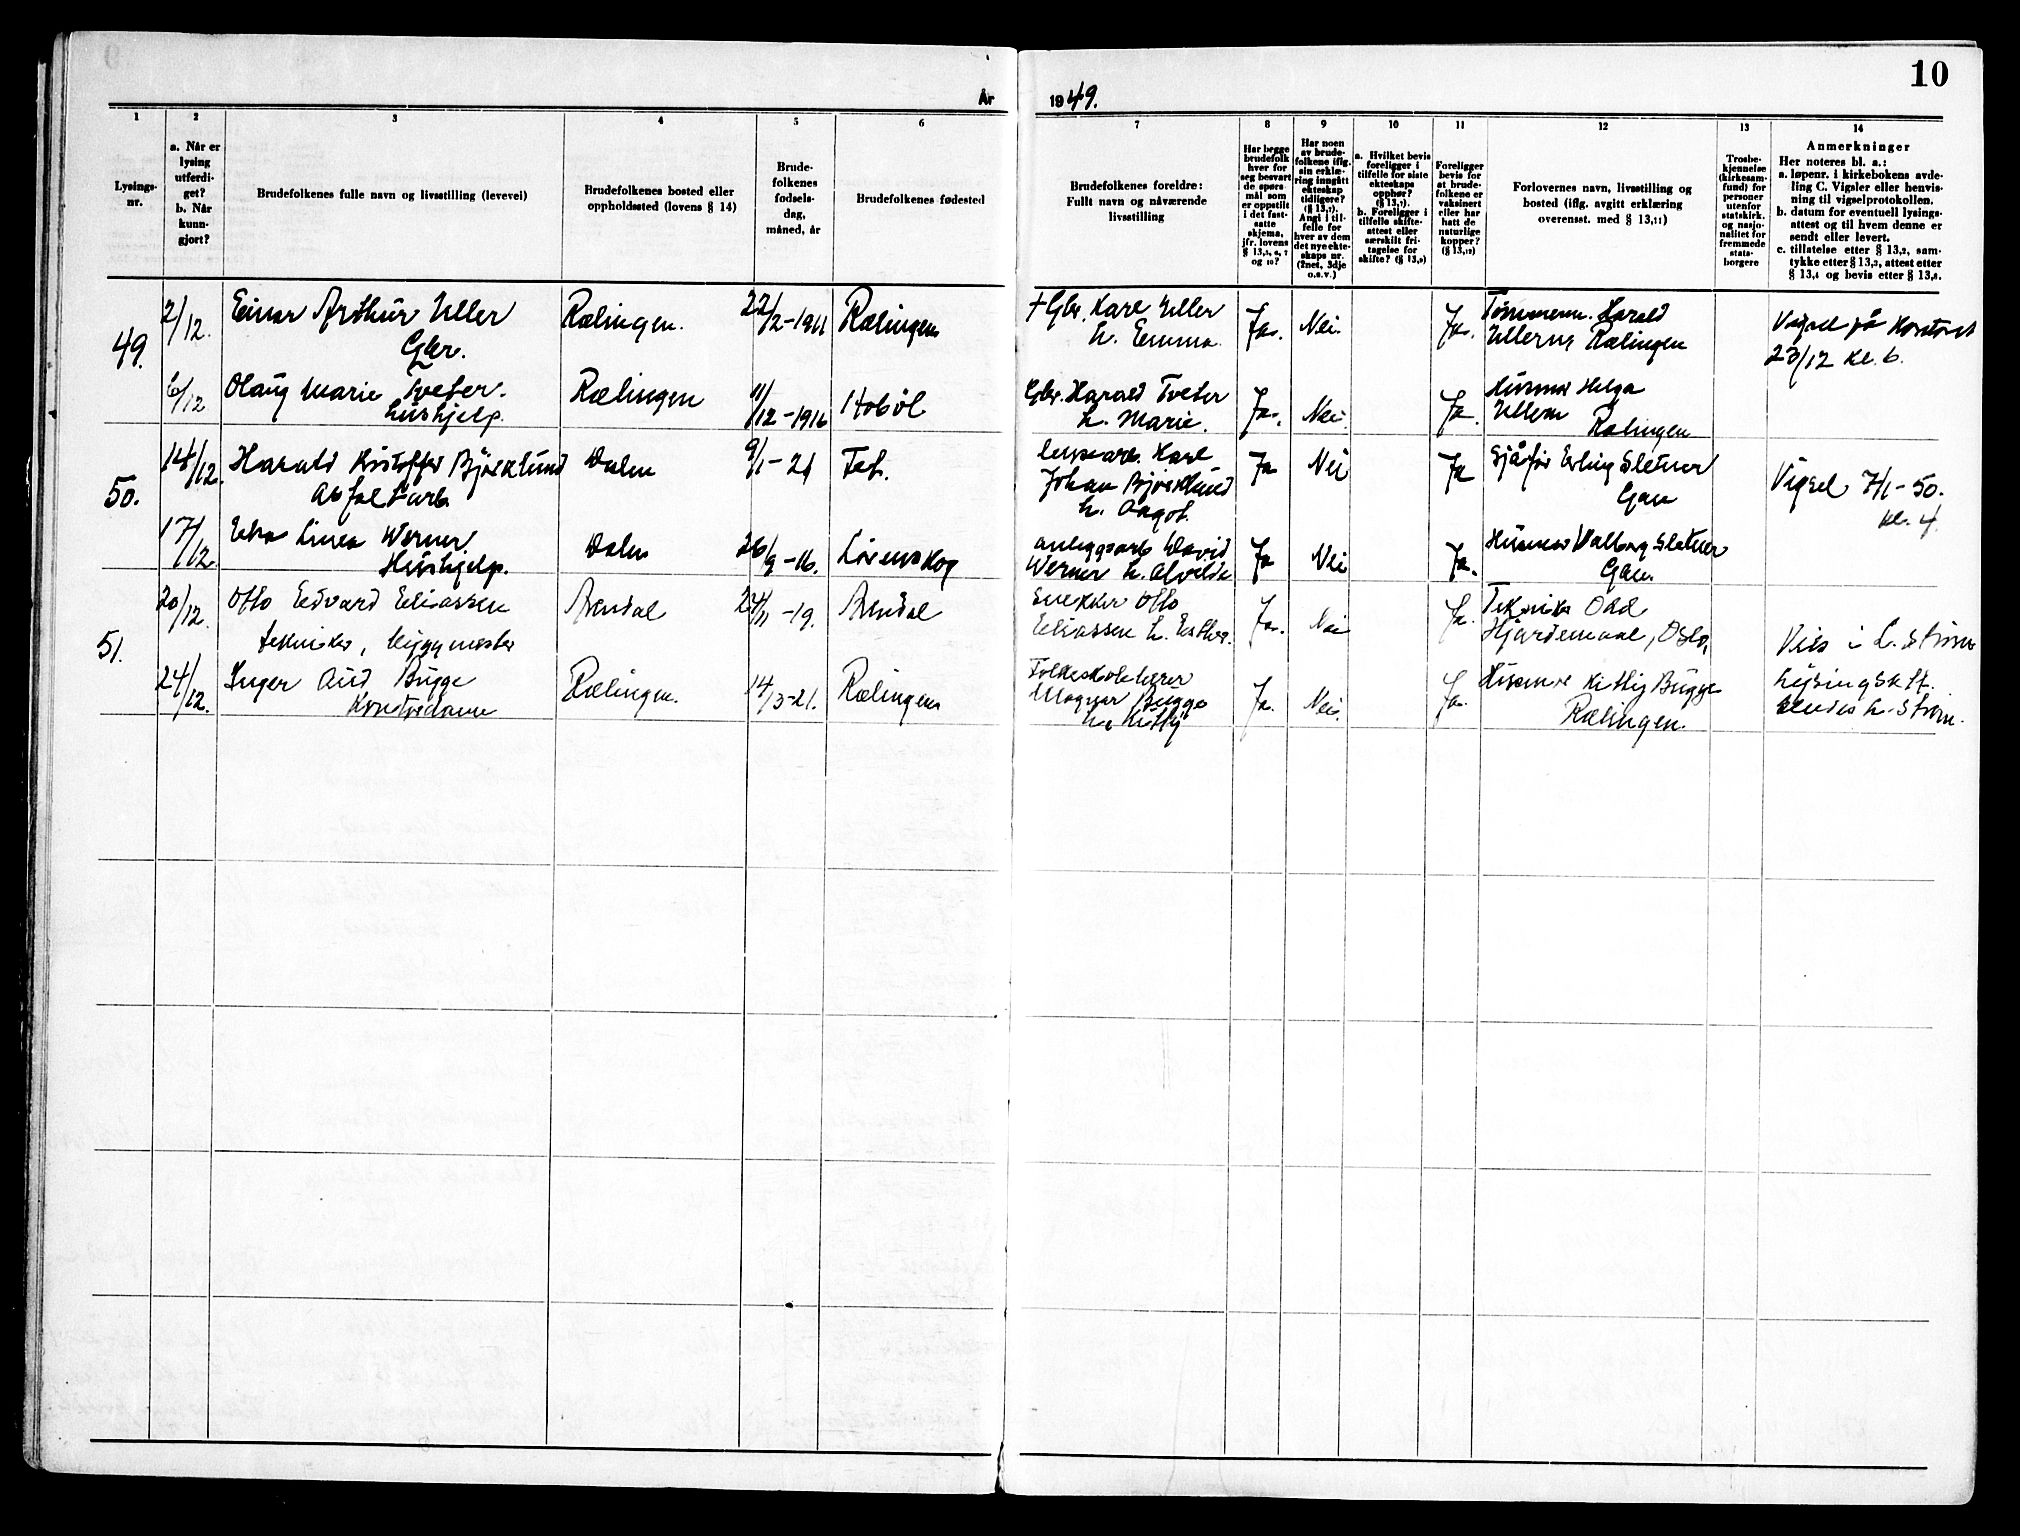 10
År 1949.
1
2
3
4
5
6
7
8
9
10
11
12
13
14
Lysings-
nr.
a. Når er
lysing
utferdi-
get?
b. Når
kunn-
gjort?
Brudefolkenes fulle navn og livsstilling (levevei)
Brudefolkenes bosted eller
oppholdssted (lovens § 14)
Brude-
folkenes
fødsels-
dag,
måned, år
Brudefolkenes fødested
Brudefolkenes foreldre:
Fullt navn og nåværende
livsstilling
Har begge
brudefolk
hver for
seg besvart
de spørs-
mål som
er oppstilt
i det fast-
satte
skjema,
jfr. lovens
Har noen
av brude-
folkene iflg.
sin erklæ-
ring inngått
ekteskap
tidligere?
(§ 13,7).
Angi i til-
felle for
hver av dem
det nye ekte-
skaps nr.
(2net, 3dje
o.s.v.)
a. Hvilket bevis
foreligger i
tilfelle for siste
ekteskaps
opphør?
(§ 13,7).
b. Foreligger i
tilfelle skifte-
attest eller
særskilt fri-
tagelse for
skifte? (§ 13,9)
Foreligger
bevis for
at brude-
folkene er
vaksinert
eller har
hatt de
naturlige
kopper?
(§ 13,12)
Forlovernes navn, livsstilling og
bosted (iflg. avgitt erklæring
overensst. med § 13,11)
Trosbe-
kjennelse
(kirkesam-
fund) for
personer
utenfor
statskirk.
og nasjo-
nalitet for
fremmede
stats-
borgere
Anmerkninger
Her noteres bl. a.:
a. løpenr. i kirkebokens avde-
ling C. Vigsler eller henvis-
ning til vigselprotokollen.
b. datum for eventuell lysings-
attest og til hvem denne er
sendt eller levert.
c. tillatelse etter § 13,2, sam-
tykke etter § 13,3, attest etter
§ 13,4 og bevis etter § 13,8.
49.
2/12.
Einar Arthur Uller
Gbr.
Rælingen.
22/2-1911
Rælingen
+ Gbr. Karl Uller
h. Emma
Ja.
Nei.
Ja.
Tømmerm. Harald
Ullerns Rælingen
Vigsel på kontoret
23/12 kl. 6.
6/12
Olaug Marie Tveter.
hushjelp.
Rælingen
11/12-1916
Hobøl
Gbr. Harald Tveter
h. Marie.
Ja.
Nei.
Ja.
Husmor Helga
Ullern
Rælingen
50.
14/12.
Harald Kristoffer Bjørklund
Asfaltarb.
Dalen
9/1-21
Fet.
Karl
Johan Bjørklund
h. Dagot.
Ja
Nei
Ja
Sjåfør Erling Sletner
Gan
Vigsel 7/1-50.
kl. 4.
17/12
Elsa Linea Werner
Hushjelp.
Dalen
26/9-16.
Lørenskog
anleggsarb David
Werner h. Alvilde
Ja
Nei
Ja.
Husmor Valborg Sletner
Gan.
51.
20/12.
Otto Edvard Eliassen
tekniker, byggmester
Arendal
24/11-19.
Arendal
Snekker Otto
Eliassen h. Esther.
Ja.
Nei
Ja.
Tekniker Odd
Hjardemaal, Oslo,
Vies i L. Strøm
24/12.
Inger Aud Bugge
Kontordame
Rælingen.
14/3-21.
Rælingen
Folkeskolelærer
Magnar Bugge
h. Kitty
Ja.
Nei.
Ja.
Husmor Kitty Bugge
Rælingen.
Lysingsatt.
sendes L. Strøm.